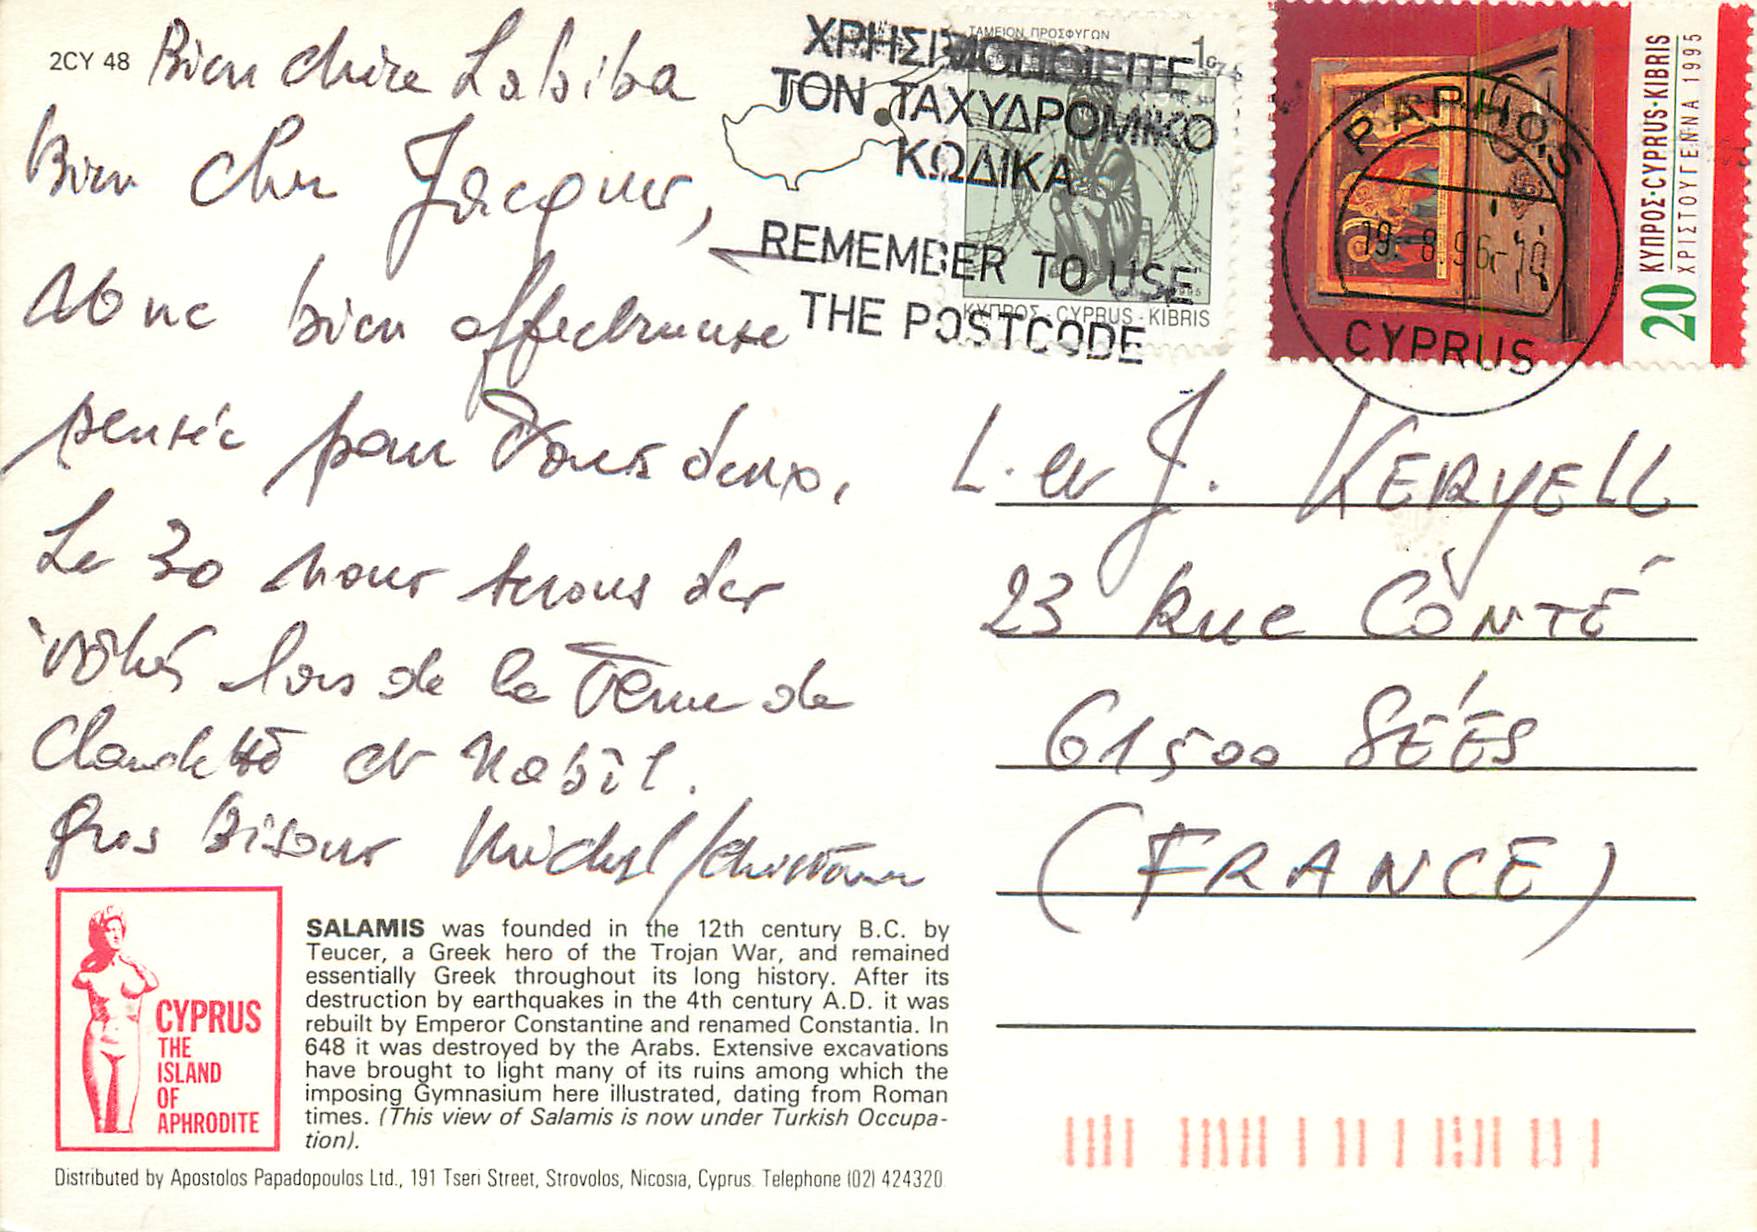 2CY 48
Bien chère Labiba
Bien cher Jacques,
Une bien affectueuse
pensée pour vous deux,
Le 30 nous serons des
vôtres lors de la venue de
Claudette et Nabil.
Gros Bisous Michel/Christiane
ΧΡΗΣΙΜΟΠΟΙΕΙΤΕ
ΤΟΝ ΤΑΧΥΔΡΟΜΙΚΟ
ΚΩΔΙΚΑ
REMEMBER TO USE
THE POSTCODE
ΤΑΜΕΙΟΝ ΠΡΟΣΦΥΓΩΝ
1c
1995
ΚΥΠΡΟΣ - CYPRUS - KIBRIS
ΚΥΠΡΟΣ·CYPRUS·KIBRIS
ΧΡΙΣΤΟΥΓΕΝΝΑ 1995
20
PAPHOS
19.-8.96-
CYPRUS
L. et J. KERYELL
23 Rue CONTÉ
61500 SÉES
(FRANCE)
CYPRUS
THE
ISLAND
OF
APHRODITE
SALAMIS was founded in the 12th century B.C. by
Teucer, a Greek hero of the Trojan War, and remained
essentially Greek throughout its long history. After its
destruction by earthquakes in the 4th century A.D. it was
rebuilt by Emperor Constantine and renamed Constantia. In
648 it was destroyed by the Arabs. Extensive excavations
have brought to light many of its ruins among which the
imposing Gymnasium here illustrated, dating from Roman
times. (This view of Salamis is now under Turkish Occupa-
tion).
Distributed by Apostolos Papadopoulos Ltd., 191 Tseri Street, Strovolos, Nicosia, Cyprus. Telephone (02) 424320